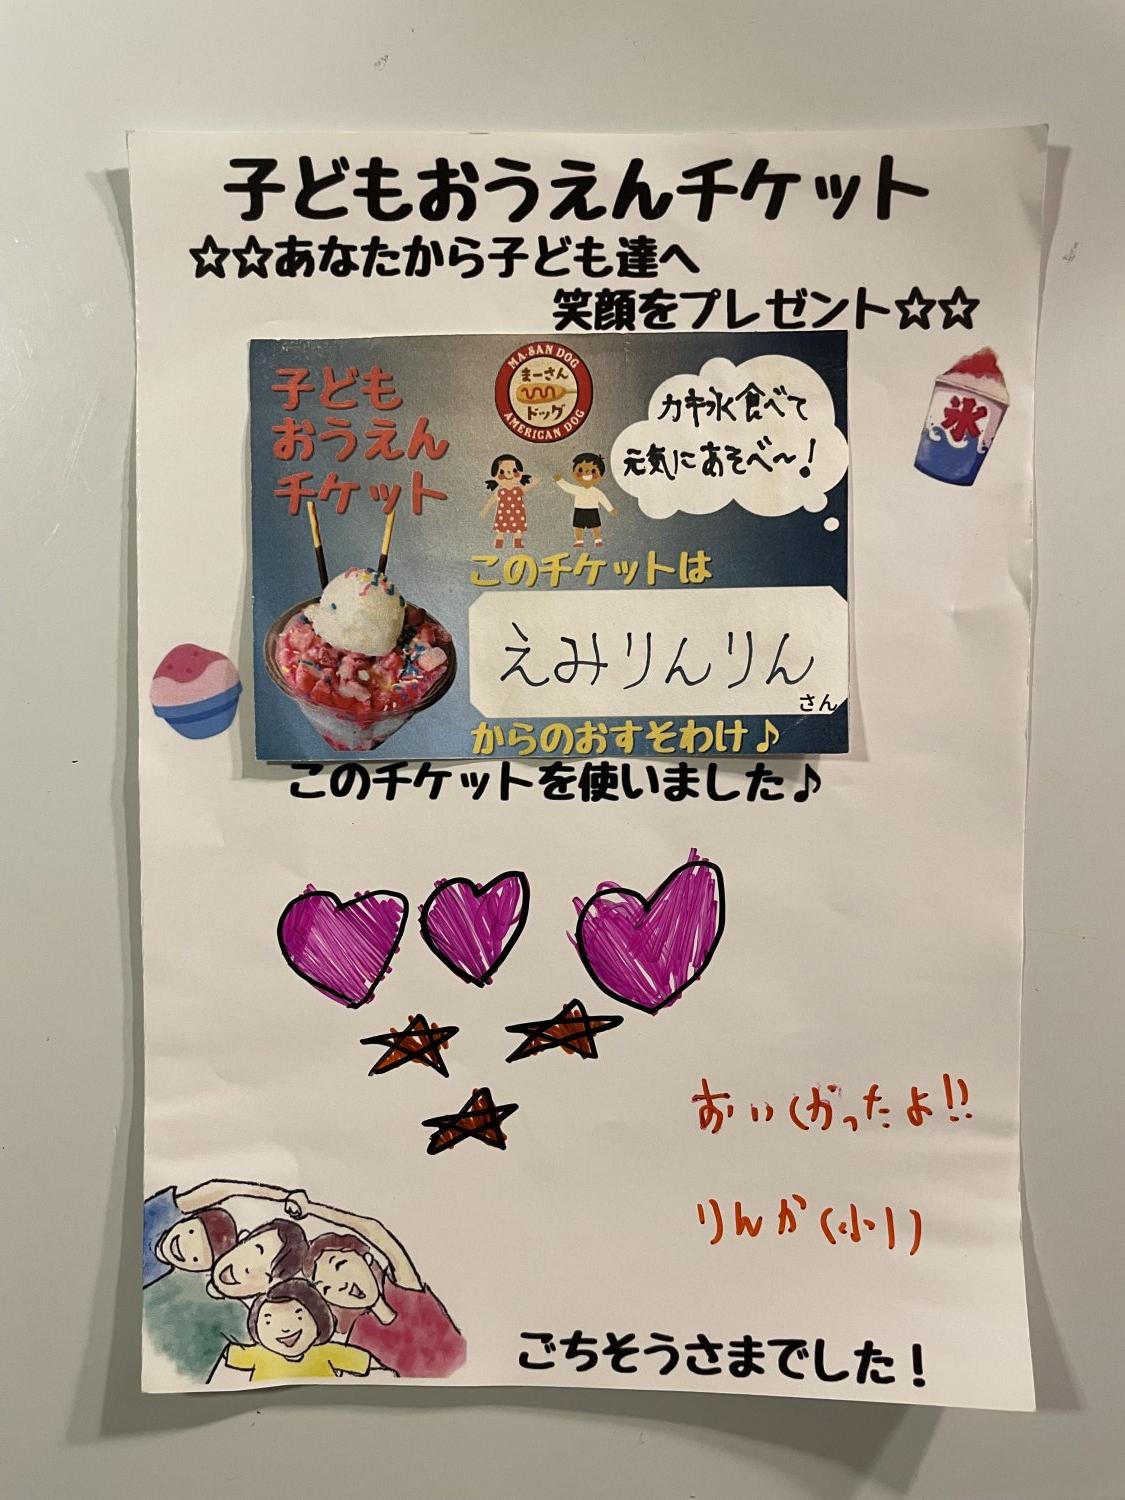 子どもおうえんチケット
☆☆あなたから子ども達へ
笑顔をプレゼント☆☆
子ども
おうえん
チケット
MA-SAN DOG
まーさん
ドッグ
AMERICAN DOG
カキ氷食べて
元気にあそべ〜!
氷
このチケットは
えみりんりん
さん
からのおすそわけ♪
このチケットを使いました♪
おいしかったよ!!
りんか(小1)
ごちそうさまでした!